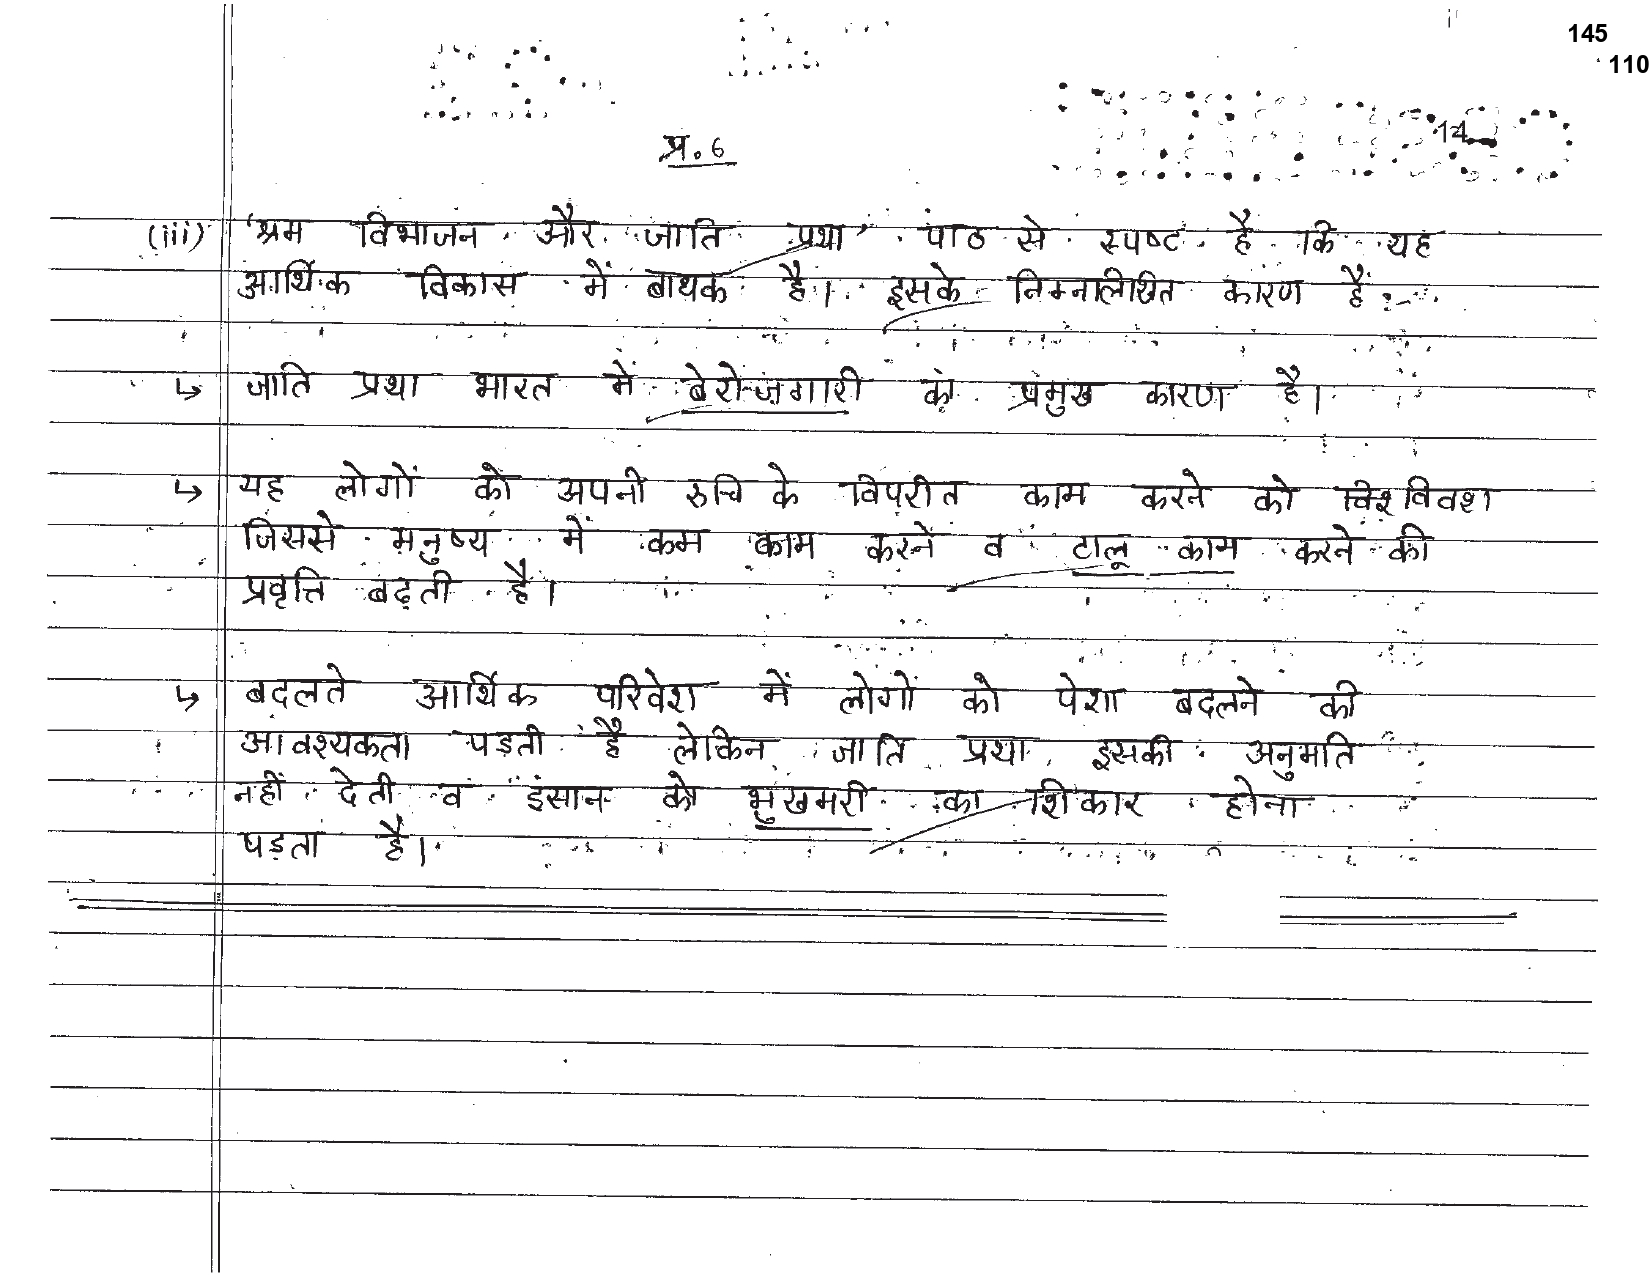 145
110
14
प्र. 6
(iii) 'श्रम विभाजन और जाति प्रथा' पाठ से स्पष्ट है कि यह
आर्थिक विकास में बाधक है। इसके निम्नलिखित कारण हैं:-
↳ जाति प्रथा भारत में बेरोजगारी का प्रमुख कारण है।
↳ यह लोगों को अपनी रुचि के विपरीत काम करने को विवश
जिससे मनुष्य में कम काम करने व टालू काम करने की
प्रवृत्ति बढ़ती है।
↳ बदलते आर्थिक परिवेश में लोगों को पेशा बदलने की
आवश्यकता पड़ती है लेकिन जाति प्रथा इसकी अनुमति
नहीं देती व इंसान को भुखमरी का शिकार होना
पड़ता है।